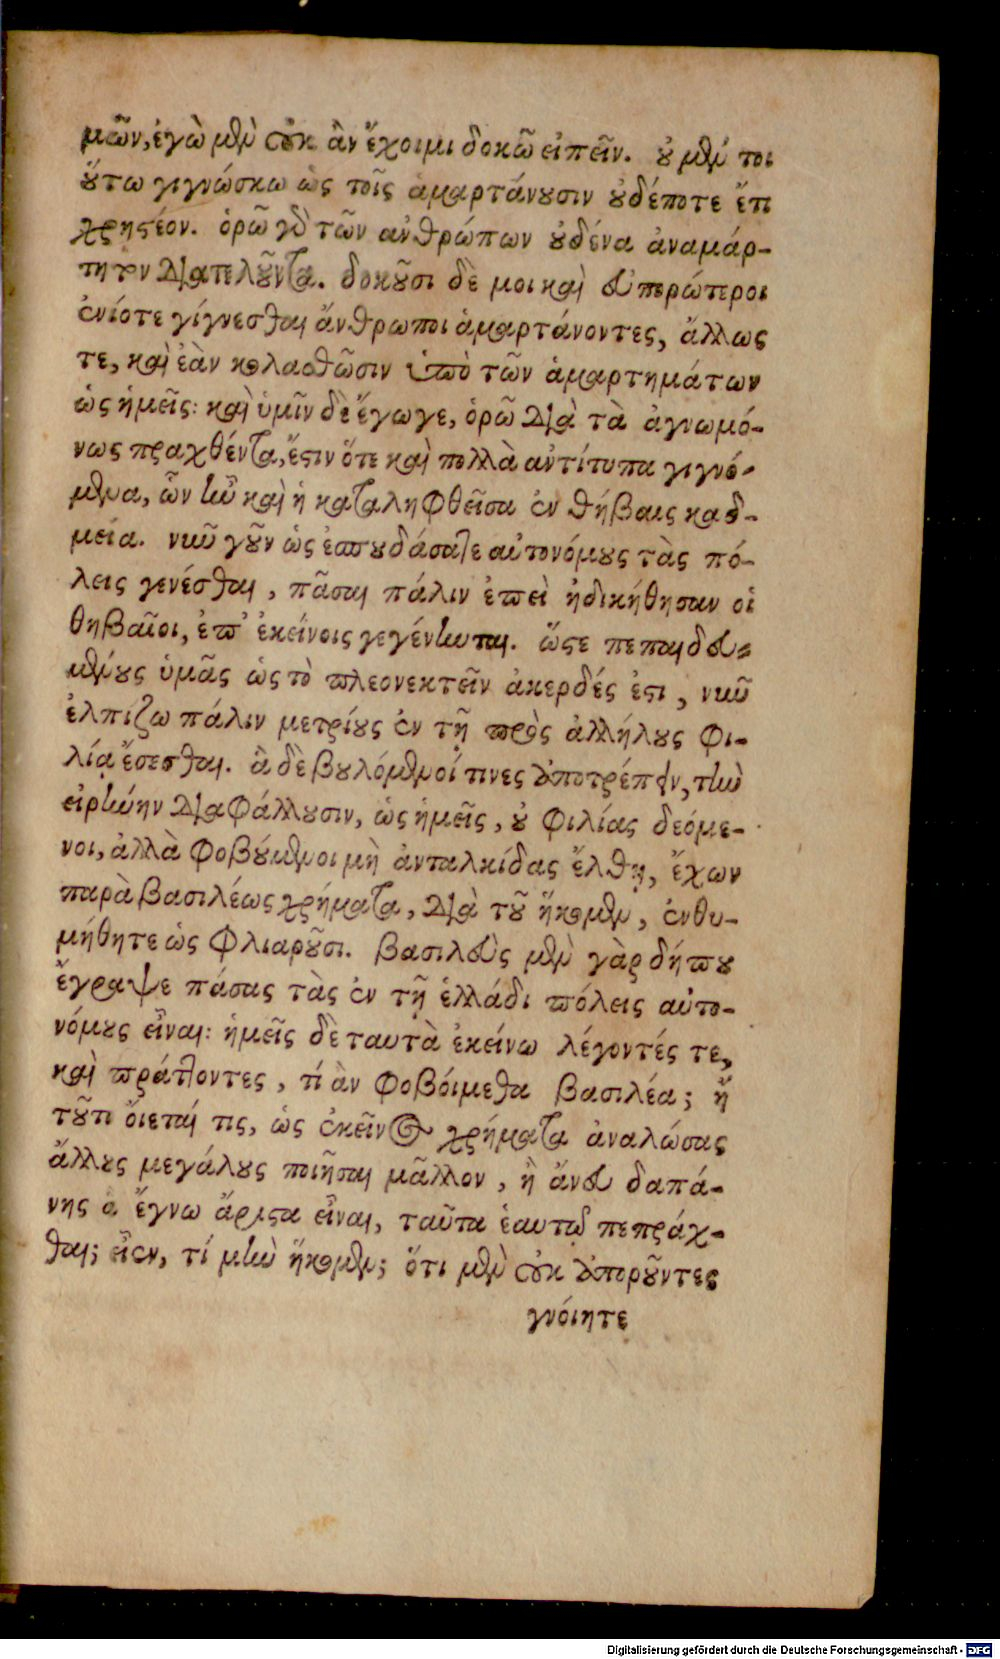 μῶν, ἐγὼ μὲν οὐκ ἂν ἔχοιμι δοκῶ εἰπεῖν. οὐ μέν τοι
οὕτω γιγνώσκω ὡς τοῖς ἁμαρτάνουσιν οὐδέποτε ἔτι
χρηστέον. ὁρῶ γὰρ τῶν ἀνθρώπων οὐδένα ἀναμάρ-
τητον διατελοῦντα. δοκοῦσι δὲ μοι καὶ εὐπορώτεροι
ἐνίοτε γίγνεσθαι ἄνθρωποι ἁμαρτάνοντες, ἄλλως
τε, καὶ ἐὰν κολασθῶσιν ὑπὸ τῶν ἁμαρτημάτων
ὡς ἡμεῖς: καὶ ὑμῖν δὲ ἔγωγε, ὁρῶ διὰ τὰ ἀγνωμό-
νως πραχθέντα, ἔστιν ὅτε καὶ πολλὰ αὐτίτυπα γιγνό-
μενα, ὧν ἦν καὶ ἡ καταληφθεῖσα ἐν θήβαις καδ-
μεία. νῦν γοῦν ὡς ἐσπουδάσατε αὐτονόμους τὰς πό-
λεις γενέσθαι, πᾶσαι πάλιν ἐπεὶ ἠδικήθησαν οἱ
θηβαῖοι, ἐπ' ἐκείνοις γεγένηνται. ὥστε πεπαιδευ-
μένους ὑμᾶς ὡς τὸ πλεονεκτεῖν ἀκερδές ἐστι, νῦν
ἐλπίζω πάλιν μετρίους ἐν τῇ πρὸς ἀλλήλους φι-
λίᾳ ἔσεσθαι. ἃ δὲ βουλόμενοί τινες ἀποτρέπειν, τὴν
εἰρήνην διαφάλλουσιν, ὡς ἡμεῖς, οὐ φιλίας δεόμε-
νοι, ἀλλὰ φοβούμενοι μὴ ἀνταλκίδας ἔλθῃ, ἔχων
παρὰ βασιλέως χρήματα, διὰ τοῦ ἥκομεν, ἐνθυ-
μήθητε ὡς φλιαροῦσι. βασιλεὺς μὲν γὰρ δήπου
ἔγραψε πάσας τὰς ἐν τῇ ἑλλάδι πόλεις αὐτο-
νόμους εἶναι: ἡμεῖς δὲ ταυτὰ ἐκείνῳ λέγοντές τε,
καὶ πράττοντες, τί ἂν φοβοίμεθα βασιλέα; ἢ
τοῦτι οἴεταί τις, ὡς ἐκεῖνος χρήματα ἀναλώσας
ἄλλους μεγάλους ποιῆσαι μᾶλλον, ἢ ἄνευ δαπά-
νης ἃ ἔγνω ἄριστα εἶναι, ταῦτα ἑαυτῷ πεπράχ-
θαι; εἶεν, τί μὴν ἥκομεν; ὅτι μὲν οὐκ ἀποροῦντες
γνοίητε
Digitalisierung gefördert durch die Deutsche Forschungsgemeinschaft - DFG